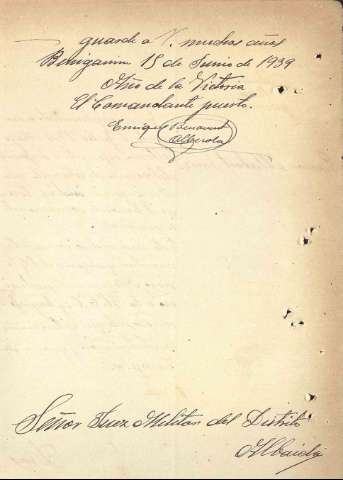 guarde a V. muchos años
Benigamin 15 de Junio de 1939
Año de la Victoria
El Comandante puesto.
Enrique Benavent
Alberola
Señor Juez Militar del Distrito
Albaida